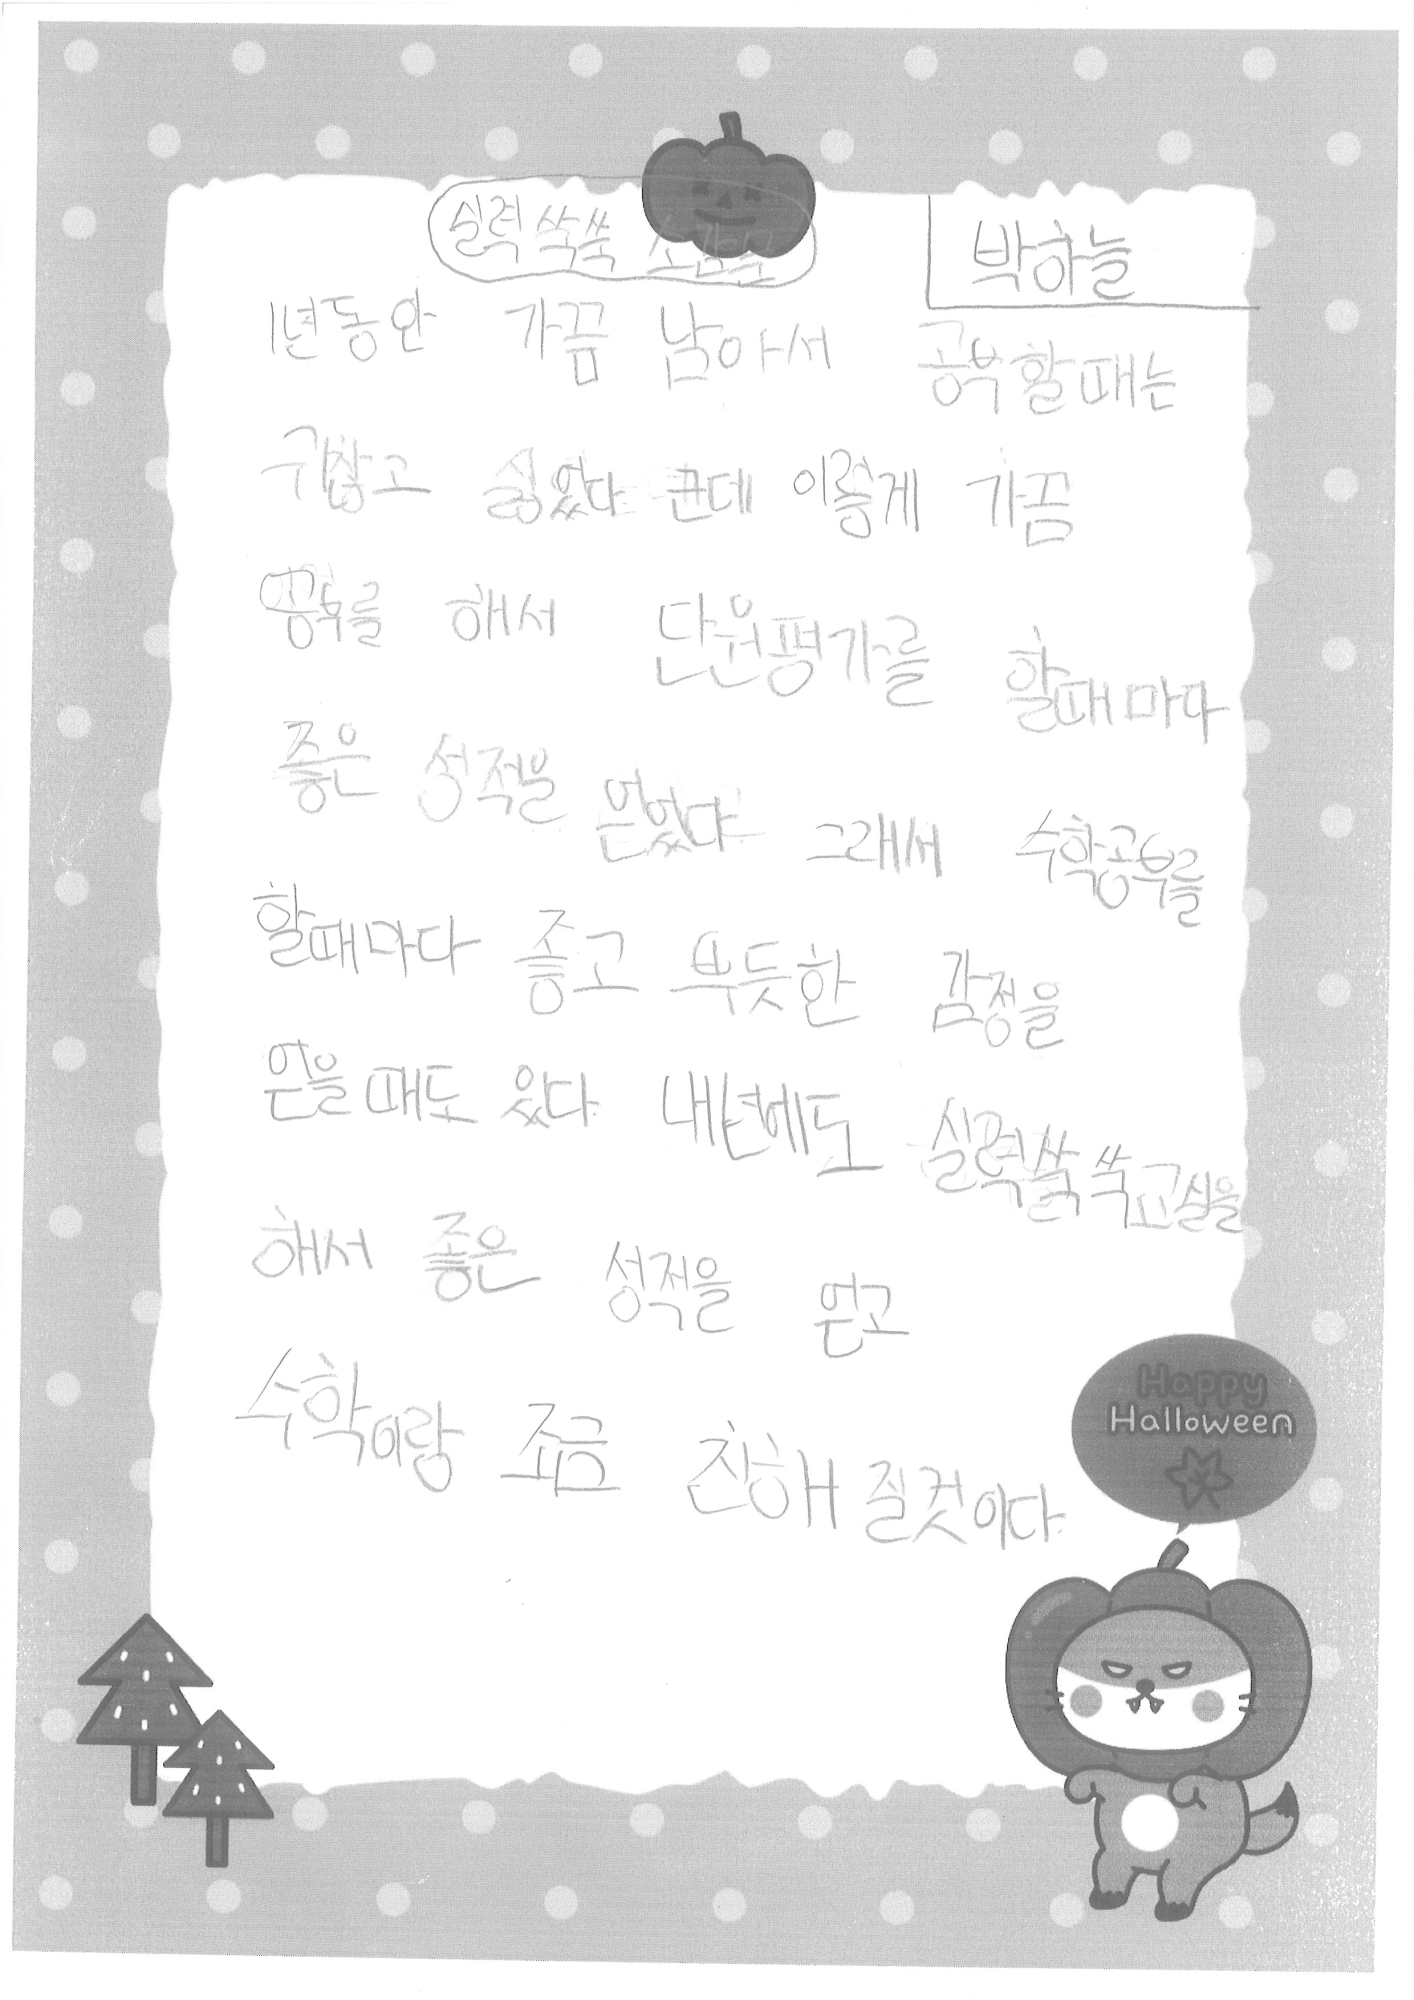 실력 쑥쑥 소감문
박하늘
1년동안 가끔 남아서 공부할때는
귀찮고 싫었다 근데 이렇게 가끔
공부를 해서 단원평가를 할때마다
좋은 성적을 얻었다 그래서 수학공부를
할때마다 좋고 뿌듯한 감정을
얻을때도 있다 내년에도 실력쑥쑥교실을
해서 좋은 성적을 얻고
수학이랑 조금 친해 질것이다
Happy
Halloween